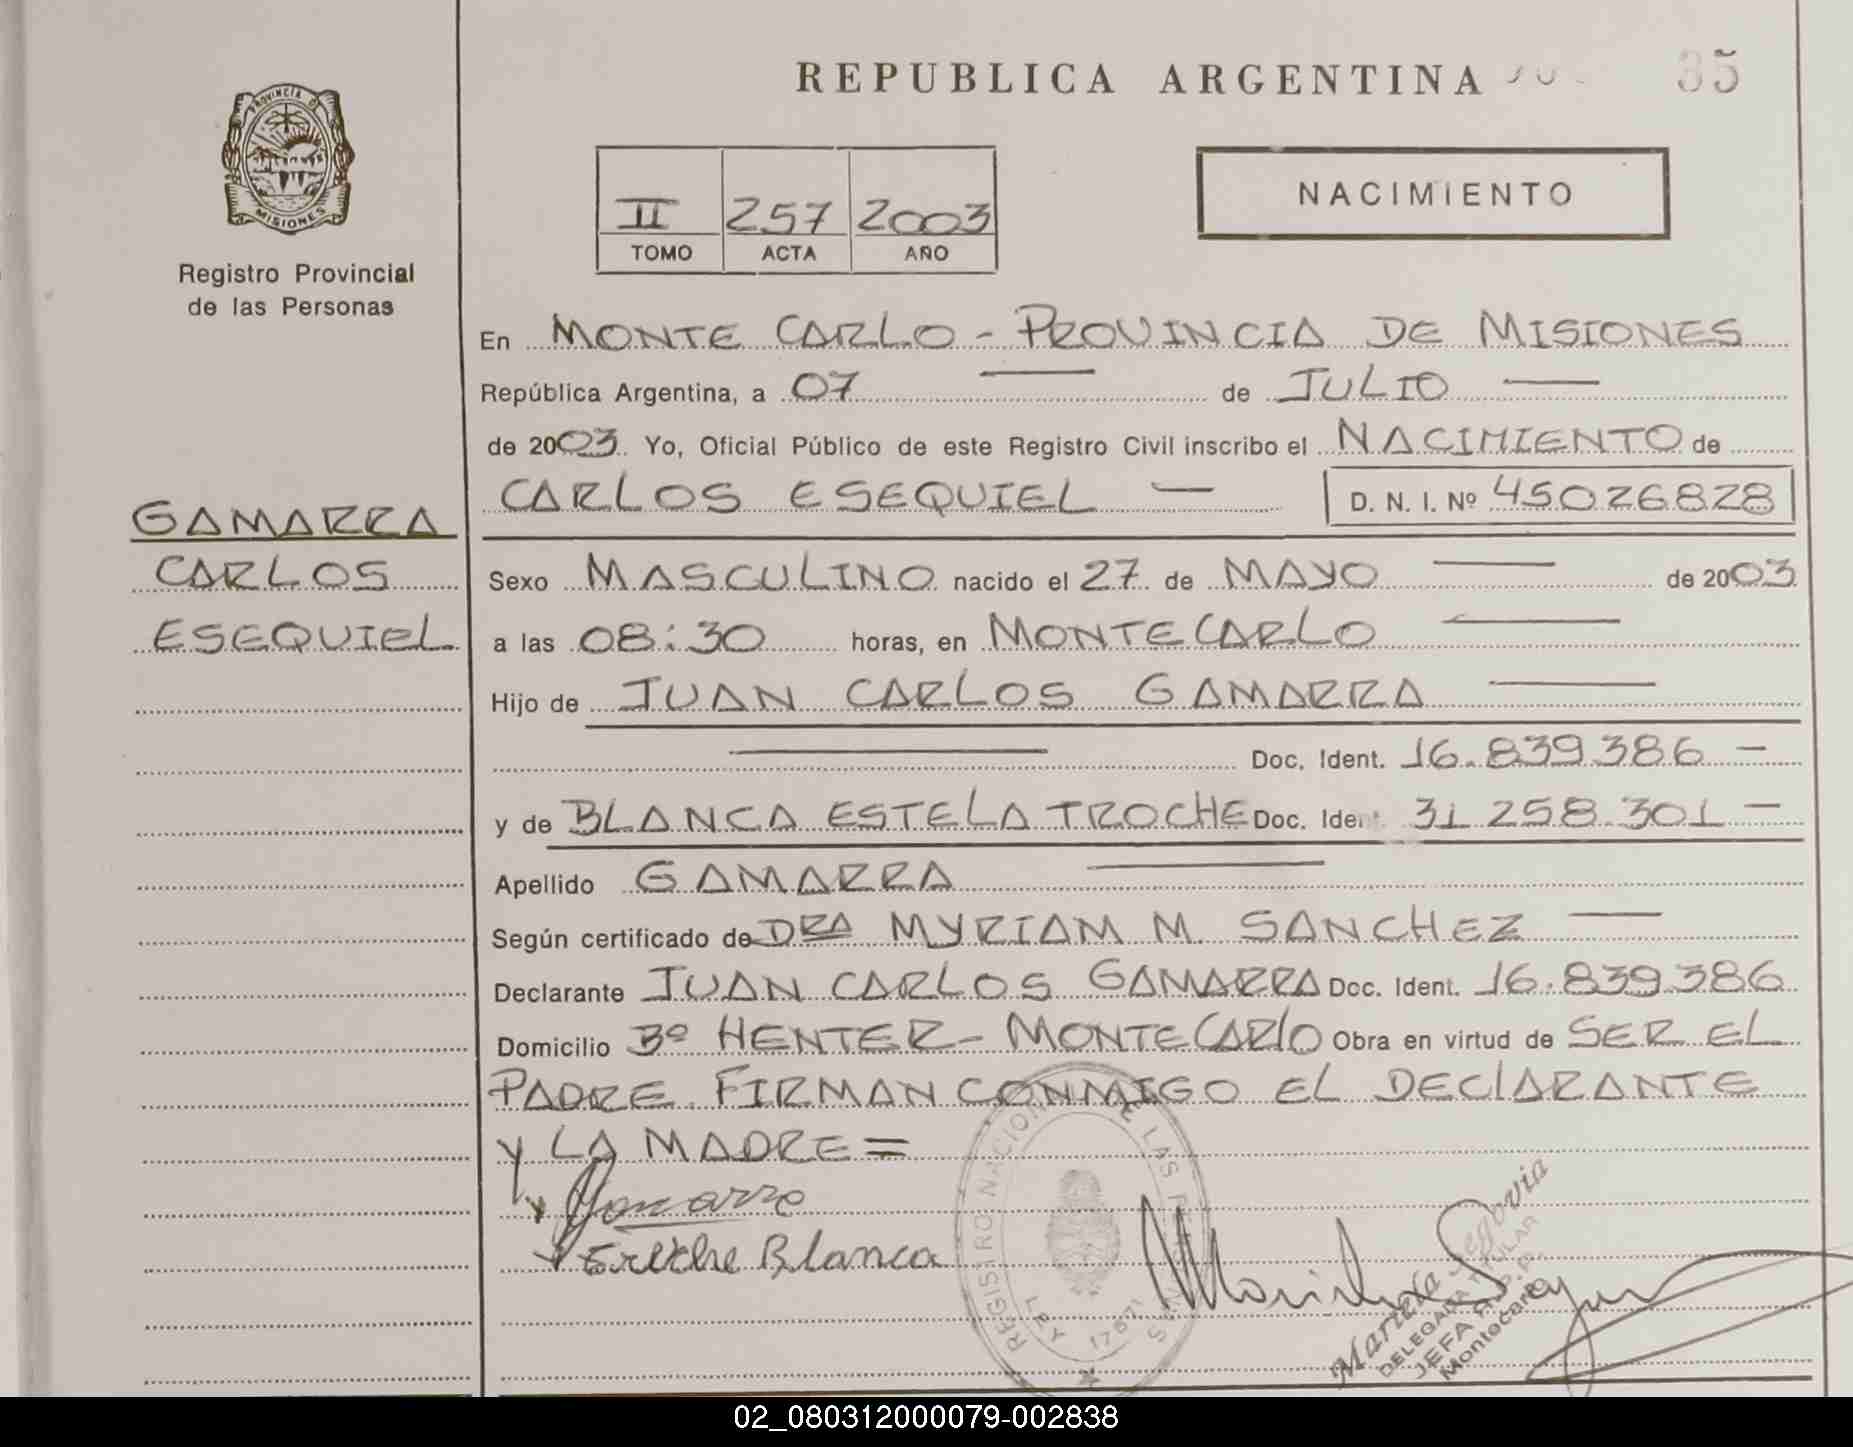 REPUBLICA ARGENTINA
35
PROVINCIA DE
MISIONES
Registro Provincial
de las Personas
II 257 2003
TOMO ACTA AÑO
NACIMIENTO
En MONTE CARLO - PROVINCIA DE MISIONES
República Argentina, a 07 — de JULIO —
de 2003 Yo, Oficial Público de este Registro Civil inscribo el NACIMIENTO de
CARLOS ESEQUIEL — D. N. I. Nº 45026828
GAMARRA
CARLOS
ESEQUIEL
Sexo MASCULINO nacido el 27 de MAYO — de 2003
a las 08:30 horas, en MONTECARLO —
Hijo de JUAN CARLOS GAMARRA —
— Doc. Ident. 16.839.386 —
y de BLANCA ESTELA TROCHE Doc. Ident 31.258.301 —
Apellido GAMARRA —
Según certificado de DRA MYRIAM M. SANCHEZ —
Declarante JUAN CARLOS GAMARRA Doc. Ident. 16.839.386
Domicilio Bº HENTER - MONTECARLO Obra en virtud de SER EL
PADRE. FIRMAN CONMIGO EL DECLARANTE
Y LA MADRE =
Gamarra
Blanca
REGISTRO NACIONAL DE LAS PERSONAS
LEY 17671
Mariela Segovia
DELEGADA TITULAR
JEFA R.P.P.
Montecarlo
02_080312000079-002838